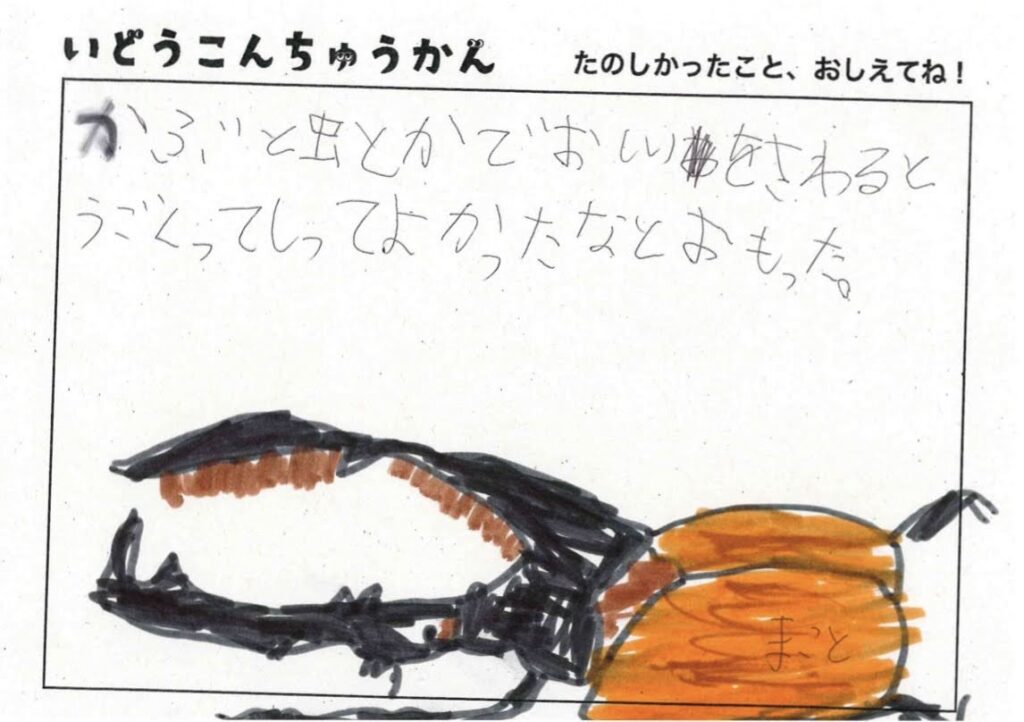 いどうこんちゅうかん
たのしかったこと、おしえてね！
かぶと虫とかでおしりをさわると
うごくってしってよかったなとおもった。
まこと